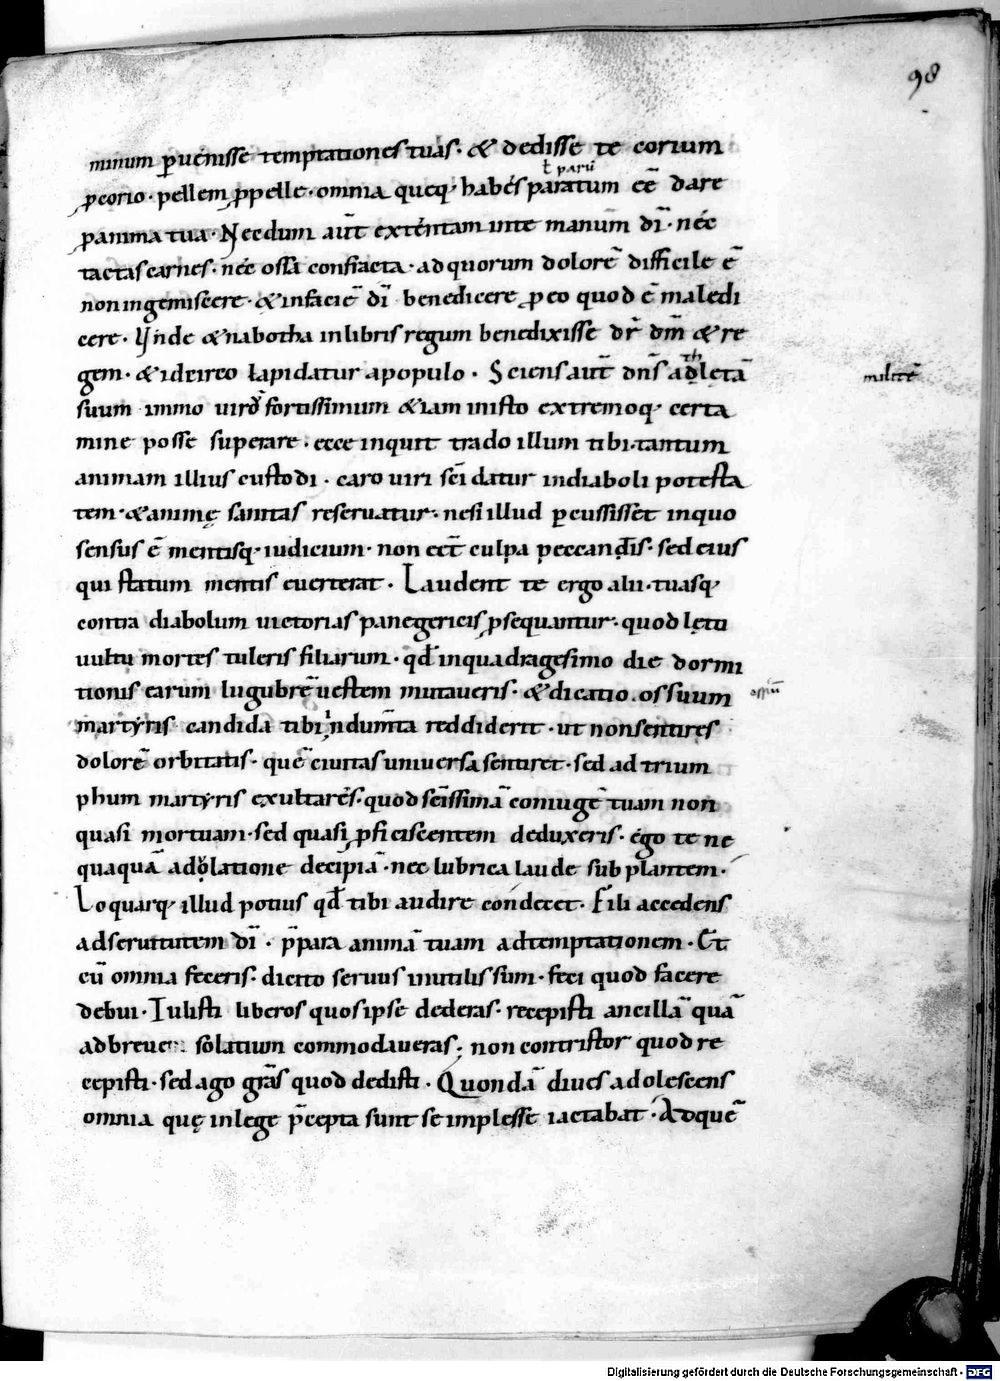 98
minum ꝑuenisse temptationes tuas· & dedisse te corium
ł parū
ꝓ corio· pellem ꝓ pelle· omnia queq; habes paratum eē dare
ꝓ anima tua· Necdum aūt extentam uite manum dī· nec
tactas carnes· nec ossa confracta· ad quorum dolorē difficile ē
non ingemiscere· & in faciē dī benedicere ꝓ eo quod ē maledi
cere· Vnde & nabotha in libris regum benedixisse dr̄ dm̄ & re
gem· & idcirco lapidatur a populo· Sciens aūt dn̄s adletā
th
militē
suum immo uirū fortissimum &iam in isto extremoq; certa
mine posse superare· ecce inquit trado illum tibi· tantum
animam illius custodi· caro uiri sc̄i datur in diaboli potesta
tem· & animę sanitas reseruatur· ne si illud ꝑcussisset in quo
sensus ē mentisq; iudicium· non eēt culpa peccandis· sed eius
qui statum mentis euerterat· Laudent te ergo alii· tuasq;
contra diabolum uictorias panegericis ꝓsequantur· quod lęto
uultu mortes tuleris filiarum· qd̄ in quadragesimo die dormi
tionis earum lugubrē uestem mutaueris· & dicatio ossuum
ossiū
martyris candida tibi indumta reddiderit· ut non sentires
dolorē orbitatis· quē ciuitas uniuersa sentiret· sed ad trium
phum martyris exultares· quod scīssimā coniugē tuam non
quasi mortuam· sed quasi ꝓficiscentem deduxeris· ego te ne
quaquā adolatione decipiā· nec lubrica laude subplantem·
Loquarq; illud potius qd̄ tibi audire condecet· Fili accedens
ad seruitutem dī· p̄para animā tuam ad temptationem· Et
cū omnia feceris· dicito seruus inutilis sum· feci quod facere
debui· Tulisti liberos quos ipse dederas· recepisti ancillā quā
ad breue solatium commodaueras; non contristor quod re
cepisti· sed ago grās quod dedisti· Quondā diues adolescens
omnia quę in lege p̄cepta sunt se implesse iactabat· Ad quē
Digitalisierung gefördert durch die Deutsche Forschungsgemeinschaft · DFG